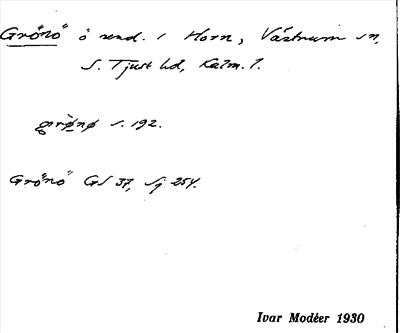 Grönö ö send. i Horn, Västrum sn,
S. Tjust hd, Kalm. l.
grø̀nø s. 192.
Grönö GS 37, Sj 254.
Ivar Modéer 1930